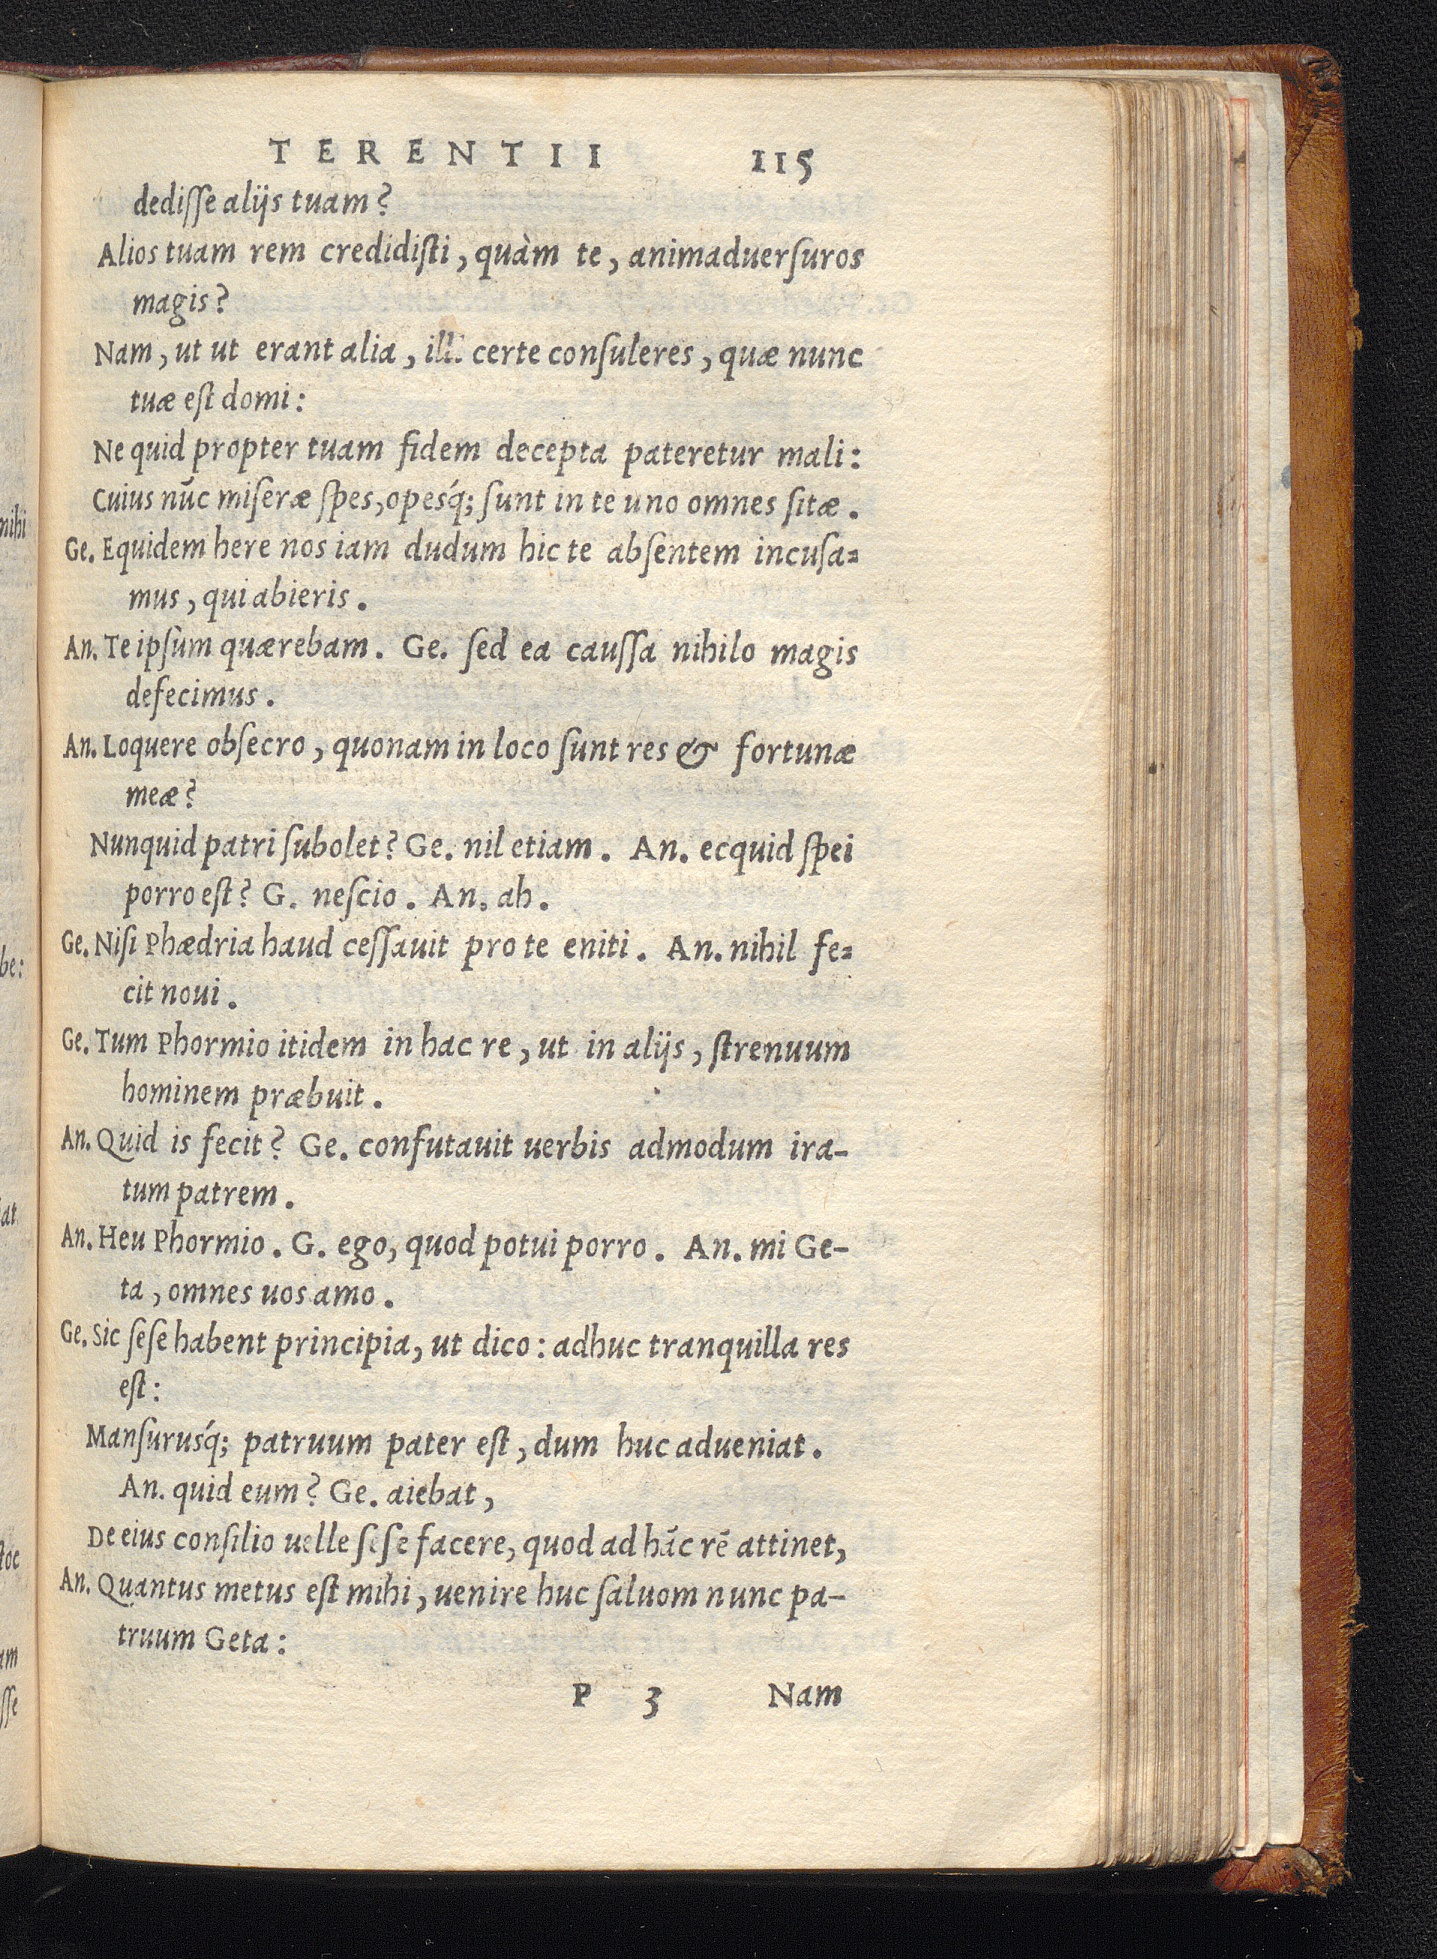 TERENTII 115
dediſſe alijs tuam?
Alios tuam rem credidiſti, quàm te, animaduerſuros
magis?
Nam, ut ut erant alia, illi certe conſuleres, quæ nunc
tuæ eſt domi:
Ne quid propter tuam fidem decepta pateretur mali:
Cuius nūc miſeræ ſpes, opesq́; ſunt in te uno omnes ſitæ.
Ge. Equidem here nos iam dudum hic te abſentem incuſa=
mus, qui abieris.
An. Te ipſum quærebam. Ge. ſed ea cauſſa nihilo magis
defecimus.
An. Loquere obſecro, quonam in loco ſunt res & fortunæ
meæ?
Nunquid patri ſubolet? Ge. nil etiam. An. ecquid ſpei
porro eſt? G. neſcio. An. ah.
Ge. Niſi Phædria haud ceſſauit pro te eniti. An. nihil fe=
cit noui.
Ge. Tum Phormio itidem in hac re, ut in alijs, ſtrenuum
hominem præbuit.
An. Quid is fecit? Ge. confutauit uerbis admodum ira-
tum patrem.
An. Heu Phormio. G. ego, quod potui porro. An. mi Ge-
ta, omnes uos amo.
Ge. Sic ſeſe habent principia, ut dico: adhuc tranquilla res
eſt:
Manſurusq́; patruum pater eſt, dum huc adueniat.
An. quid eum? Ge. aiebat,
De eius conſilio uelle ſeſe facere, quod ad hāc rē attinet,
An. Quantus metus eſt mihi, uenire huc ſaluom nunc pa-
truum Geta:
P 3 Nam